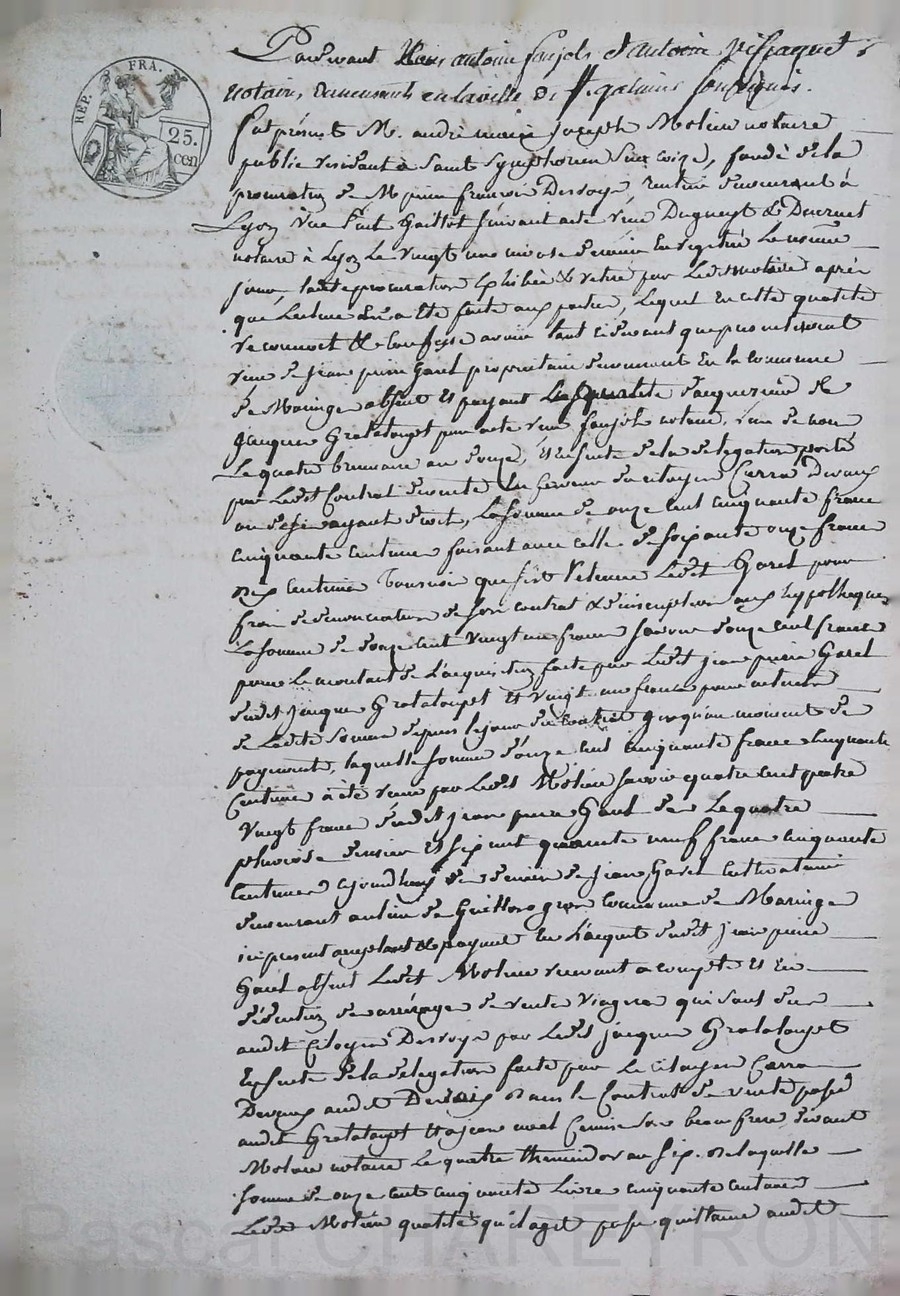 REP. FRA.
25.
cen
Pardevant Nous antoine foujols & antoine
notaires demeurants en la ville de St galmier soussignés.
fut présent M. andré marie joseph Molieu notaire
public residant à Saint Symphorien sur coize, fondé de la
procuration de M pierre françois Dessoye, rentier demeurant à
Lyon rue Puit Gaillot suivant acte reçu Dugueyt & Ducruet
notaire à Lyon le vingt un nivose dernier Enregistré le même
jour, ladte procuration Exhibée & retiré par ledit Molieu après
que lecture En a été faite aux parties, lequel En cette qualité
reconnoit & confesse avoir tant cidevant que présentement
reçu de jean pierre Garel proprietaire demeurant En la commune
de Maringe absent Et payant En qualité d'acquereur de
jacques Grataloupet par acte reçu foujols notaire, l'un de nous
Le quatre brumaire an douze, & Ensuite de la délégation portée
par ledit Contrat de vente En faveur du citoyen Carra Devaux
ou de ses ayant droit, la somme de onze cent cinquante francs
cinquante centimes faisant avec celle de soixante onze francs
dix centimes tournois que ledit Garel pour
frais de denonciation de son contrat & d'inscription aux hypotheques
La somme de douze cent vingt un francs savoir douze cent francs
pour le montant de l'acquisition faite par ledit jean pierre Garel
dudit jacques Grataloupet Et vingt un francs pour interets
de ladite somme depuis le jour du contrat jusqu'au moment du
payement, laquelle somme d'onze cent cinquante francs cinquante
Centimes à été reçue par ledit Molieu savoir quatre cent quatre
vingt francs dudit jean pierre Garel des le quatre
pluviose dernier Et six cent quarante neuf francs cinquante
Centimes cejourdhuy des deniers de jean Garel cultivateur
demeurant au lieu de commune de Maringe
ici present acceptant & payant En l'acquit dudit jean pierre
Garel absent Ledit Molieu recevant a compte Et En
déduction des arrérages de rente viagere qui sont dus
audit Citoyen Dessoye par ledit jacques Grataloupet
Ensuite de la délégation faite par le Citoyen Carra
Devaux audit dans le Contrat de vente passé
audit Grataloupet Et a jean son beau frere devant
Molieu notaire le quatre thermidor an six. De laquelle
somme de onze cent cinquante Livres cinquante centimes
Ledit Molieu qualité qu'il agit passe quittance audit
Pascal CHAREYRON